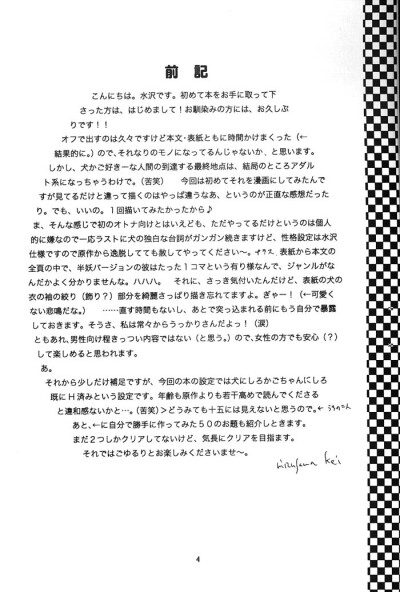 前記
こんにちは。水沢です。初めて本をお手に取って下
さった方は、はじめまして！お馴染みの方には、お久しぶ
りです！！
オフで出すのは久々ですけど本文・表紙ともに時間かけまくった（←
結果的に。）ので、それなりのモノになってるんじゃないか、と思います。
しかし、犬かご好きーな人間の到達する最終地点は、結局のところアダル
ト系になっちゃうわけで。（苦笑）　今回は初めてそれを漫画にしてみたんで
すが見てるだけと違って描くのはやっぱ違うなあ、というのが正直な感想だった
り。でも、いいの。１回描いてみたかったから♪
ま、そんな感じで初のオトナ向けとはいえども、ただやってるだけというのは個人
的に嫌なので一応ラストに犬の独白な台詞がガンガン続きますけど、性格設定は水沢
仕様ですので原作から逸脱してても赦してやってください～。表紙から本文の
全頁の中で、半妖バージョンの彼はたった１コマという有り様なんで、ジャンルがな
んだかよく分かりませんな。ハハハ。　それに、さっき気付いたんだけど、表紙の犬の
衣の袖の絞り（飾り？）部分を綺麗さっぱり描き忘れてますよ。ぎゃー！（←可愛く
ない悲鳴だな。）　……直す時間もないし、あとで突っ込まれる前にもう自分で暴露
しておきます。そうさ、私は常々からうっかりさんだよっ！（涙）
ともあれ、男性向け程きっつい内容ではない（と思う。）ので、女性の方でも安心（？）
して楽しめると思われます。
あ。
それから少しだけ補足ですが、今回の本の設定では犬にしろかごちゃんにしろ
既にＨ済みという設定です。年齢も原作よりも若干高めで読んでくださる
と違和感ないかと…。（苦笑）＞どうみても十五には見えないと思うので。←
あと、←に自分で勝手に作ってみた５０のお題も紹介しときます。
まだ２つしかクリアしてないけど、気長にクリアを目指します。
それではごゆるりとお楽しみくださいませ～。
4